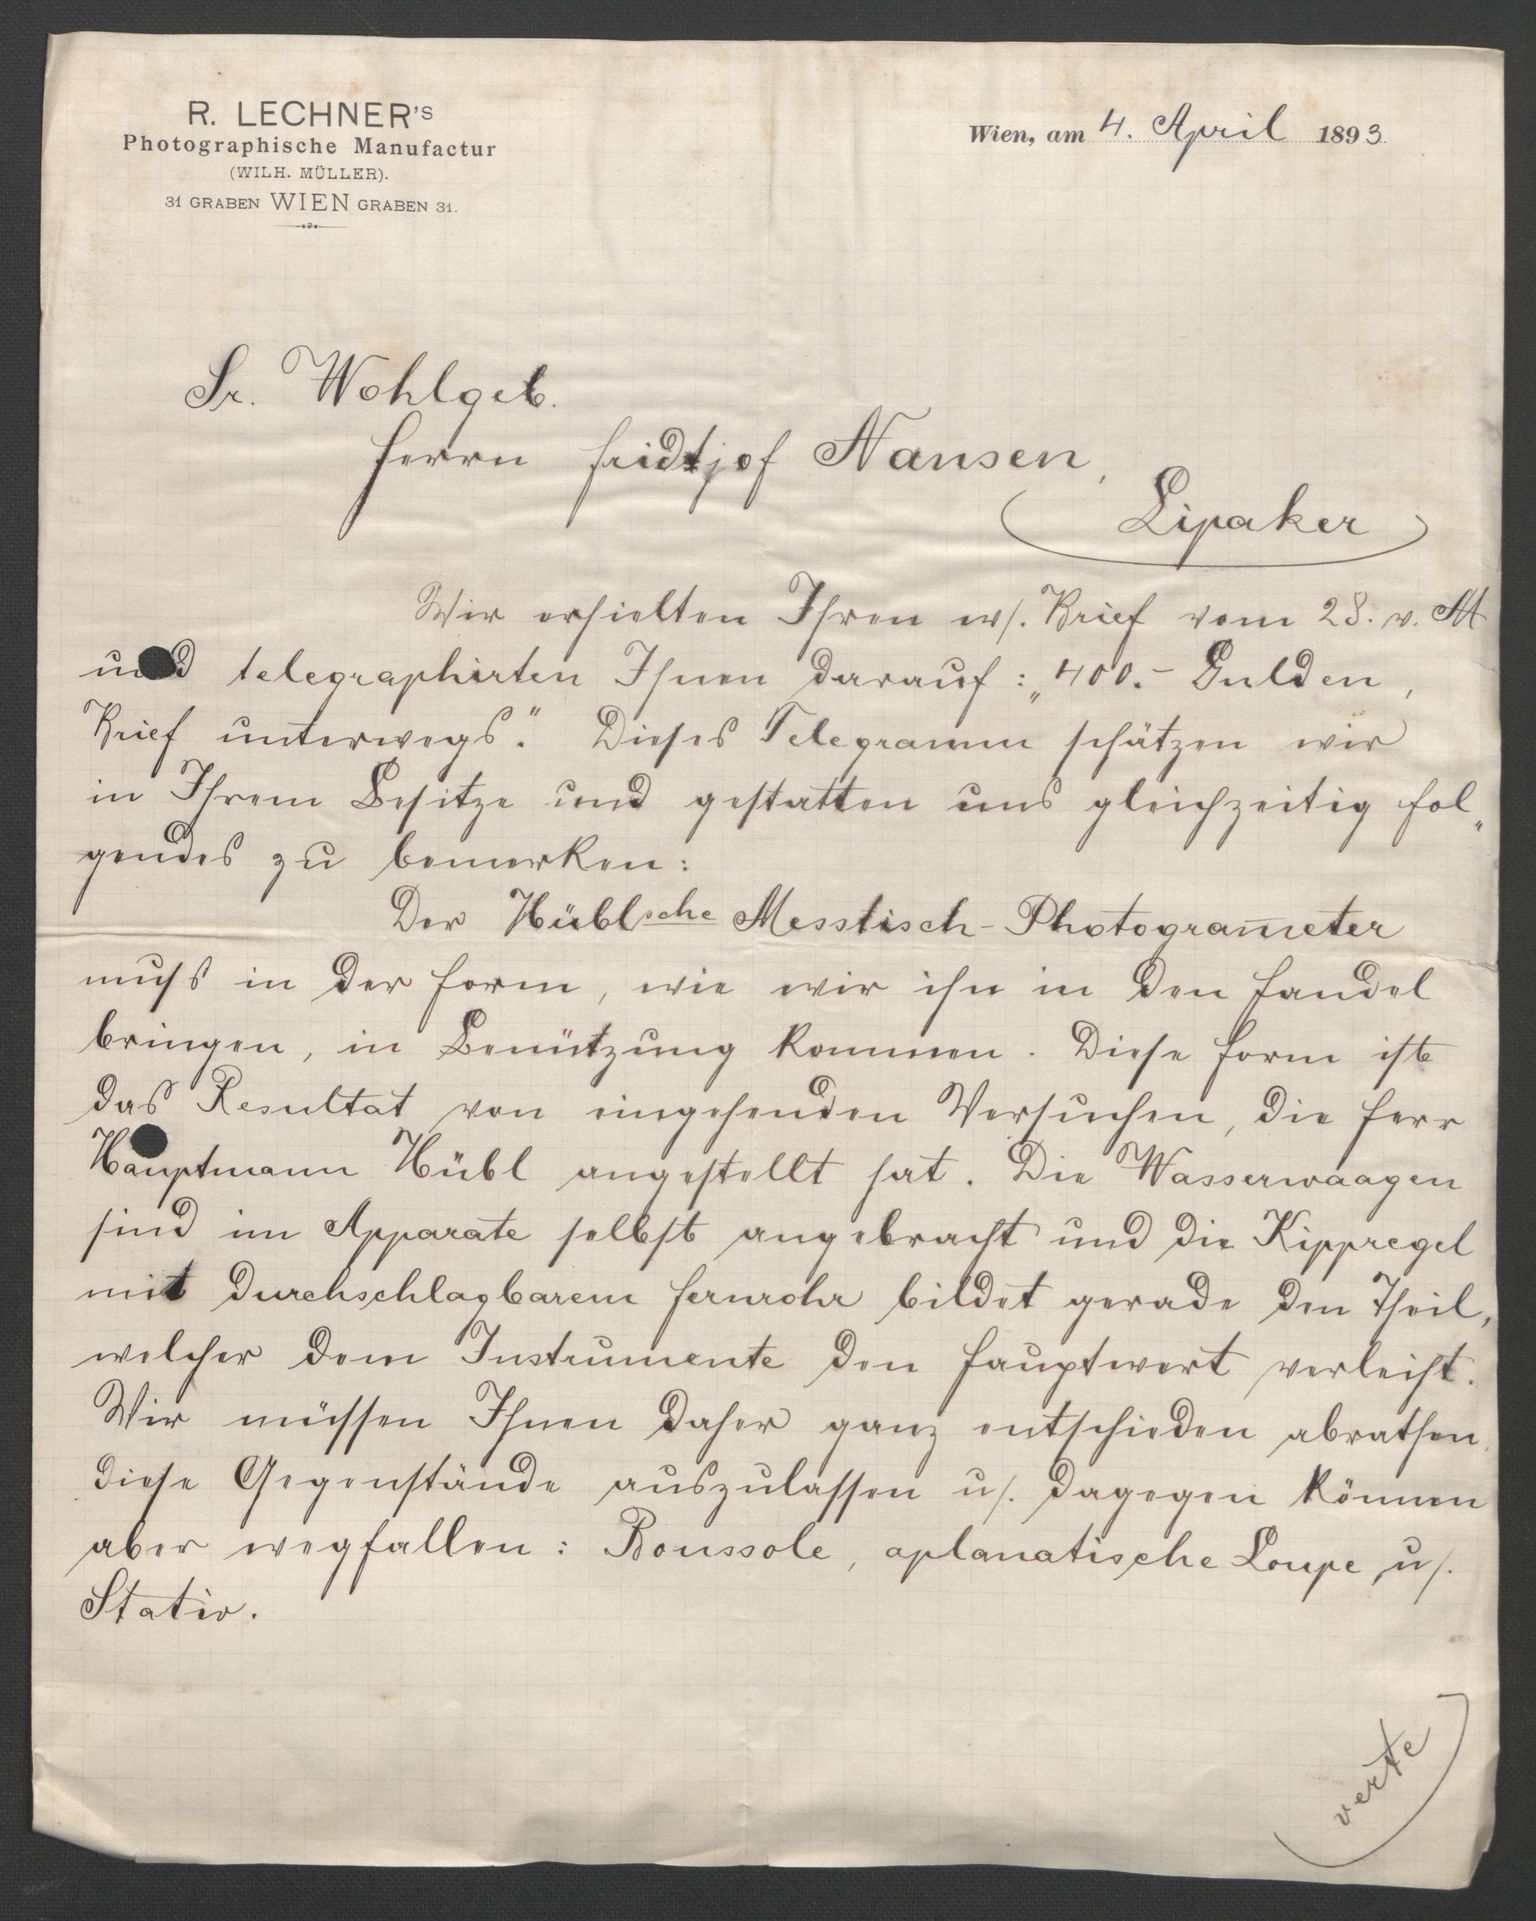 R. LECHNER's
Photographische Manufactur
(WILH. MÜLLER).
31 GRABEN WIEN GRABEN 31.
Wien, am 4. April 1893.
Sr. Wohlgeb.
Herrn Fridtjof Nansen,
Lipaker
Wir erhielten Ihren w/. Brief vom 28. v. M
und telegraphirten Ihnen darauf: „400.– Gulden,
Brief unterwegs." Dieses Telegramm schätzen wir
in Ihrem Besitze und gestatten uns gleichzeitig fol„
gendes zu bemerken:
Der Hüblsche Messtisch-Photogrameter
muss in der Form, wie wir ihn in den Handel
bringen, in Benützung kommen. Diese Form ist
das Resultat von eingehenden Versuchen, die Herr
Hauptmann Hübl angestellt hat. Die Wasserwaagen
sind im Apparate selbst angebracht und die Kippregel
mit durchschlagbarem Fernrohr bildet gerade den Theil,
welcher dem Instrumente den Hauptwert verleiht.
Wir müssen Ihnen daher ganz entschieden abrathen,
diese Gegenstände auszulassen u/. dagegen können
aber wegfallen: Boussole, aplanatische Loupe u/.
Stativ.
verte